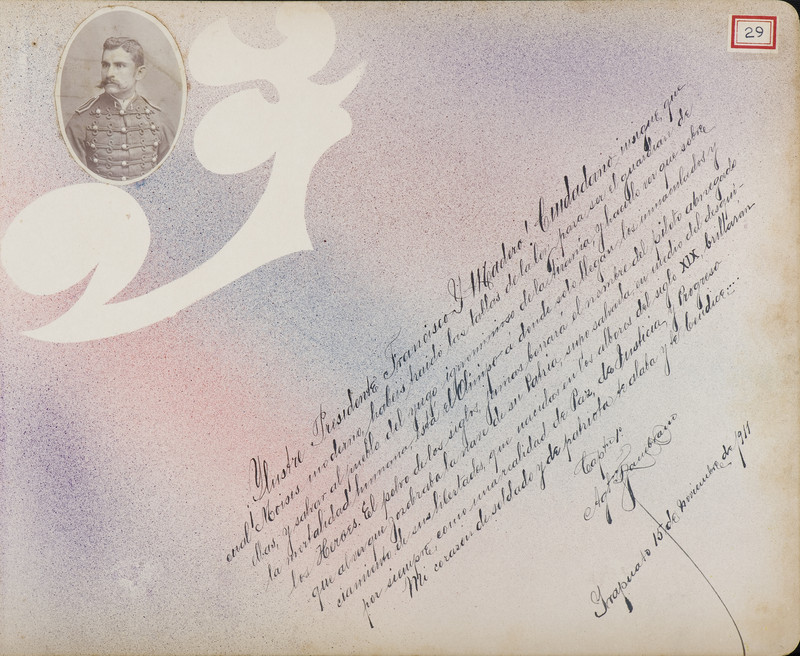 29
¡Ylustre Presidente Francisco Y Madero! Ciudadano insigne, que
cual Moises moderno, habeis traido las tablas de la ley para ser el guardian de
ellas, y salvar al pueblo del yugo ignominioso de la Tirania, y hacerle ver que sobre
la mortalidad humana está el Olimpo a donde solo llegan los inmaculados y
los Heroes. El polvo de los siglos, jamas borrará el nombre del piloto abnegado
que al ver que zozobraba la nave de su Patria, supo salvarla en medio del desqui-
ciamiento de sus libertades, que nacidas en los albores del siglo XIX brillaran
por siempre, como una realidad de Paz, de Justicia y Progreso
Mi corazon de soldado y de patriota te alaba y te bendice....
Capto 1º
Agn Zambrano
Irapuato 15 de noviembre de 1911